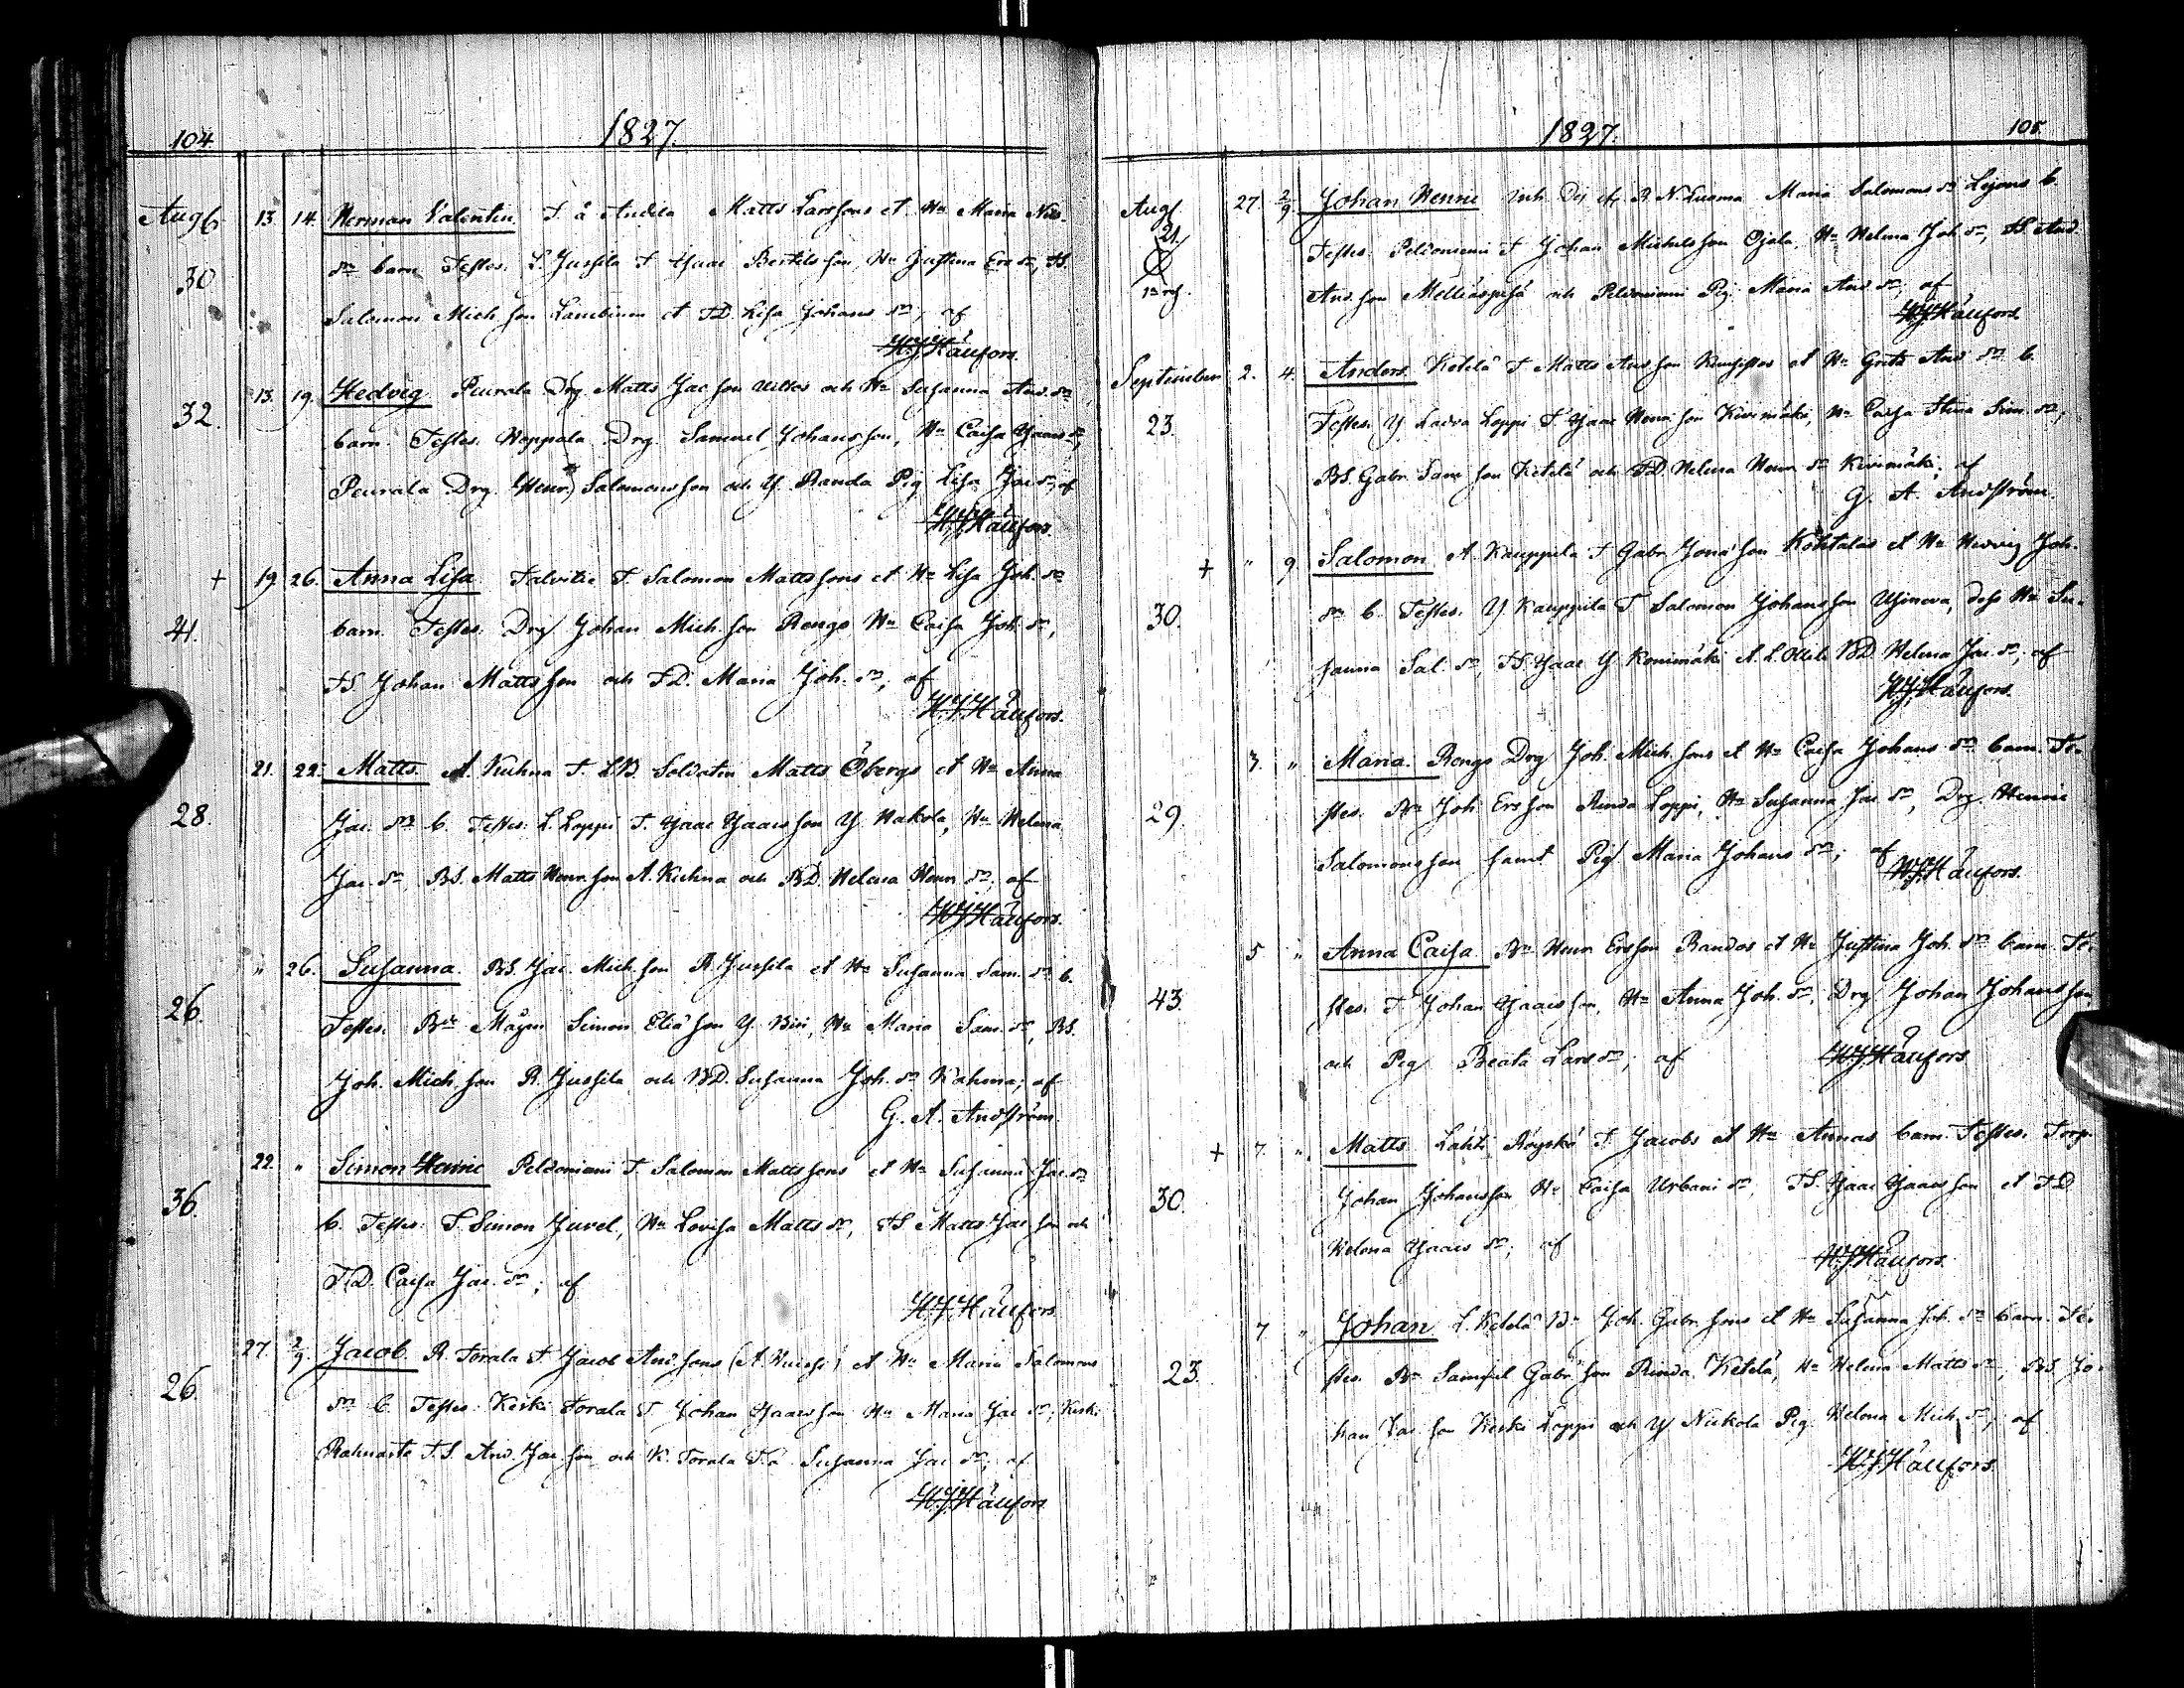 104. 1827.
Aug 13. 14. Herman Valentin T. å Andila Matts Larssons et Hu Maria Nils-
30 dr barn Testes. L. Jussila T. Isaac Bertilsson, Hu Justina Ers dr, TS.
Salomon Mich. son Lambinen et TD. Lisa Johans dr, af
H.J. Häufors.
32. 13. 19. Hedvig Peurala Drg Matts Jac son och Hu Susanna And. dr
barn. Testes. Hoppala Drg. Samuel Johansson, Hu Caisa Isaacs dr,
Peurala Drg. Henr. Salomonsson och Y. Randa Pig Lisa Jac dr, af
H.J. Häufors.
+ 19. 26. Anna Lisa Talvitie T. Salomon Mattssons et Hu Lisa Joh. dr
41. barn. Testes. Drg Johan Mich. son Rengo Hu Caisa Joh. dr,
TS. Johan Mattsson och TD. Maria Joh. dr, af
H.J. Häufors.
21. 22. Matts A. Kuhna T. LB. Soldaten Matts Öbergs et Hu Anna
28. Jac. dr b. Testes. L. Loppi T. Isaac Isaacsson Y. Hakola, Hu Helena
Jac. dr BS. Matts Henr. son A. Kuhna och BD. Helena Henr. dr, af
H.J. Häufors.
" 26. Susanna. BS. Jac. Mich. son R. Jussila et Hu Susanna Sam. dr b.
26. Testes. Simon Eliæ son Y. Hu Maria Sam. dr, BS.
Joh. Mich. son R. Jussila och BD. Susanna Joh. dr af
G. A. Andström.
22. " Simon Henric Peldoniemi T. Salomon Mattssons et Hu Susanna Jac. dr
36. b. Testes. T. Simon Juvel, Hu Lovisa Matts dr, TS Matts Jac son och
TD. Caisa Jac. dr; af
H.J. Häufors.
27. 2/9. Jacob R. Torala T. Jacob And. sons et Hu Maria Salomons
26. dr b. Testes. Keski Torala T. Johan Isaacsson Hu Maria Jac dr, Keski
Rahnasto T.S. And. Jac. son och K. Torala Susanna Jac dr, af
H.J. Häufors.
1827. 105.
Aug. 27. 2/9. Johan Henric Maria Salomons dr b.
21. Testes. Peldoniemi T Johan Michelsson Ojala, Hu Helena Joh. dr, TS And.
And. son och Peldoniemi Pig. Maria And dr, af
H.J. Häufors.
September 2. 4. Anders. Ketelä T Matts And son et Hu Greta And dr b.
23. Testes. Y. Ladva Loppi T. Isaac Henr. son Kivimäki, Hu Caisa Stina Sim. dr,
BS. Gabr. Sam. son Ketelä och TD. Helena Henr. dr Kivimäki, af
G. A. Andström.
+ " 9. Salomon A. Kauppila T. Gabr. Jonæ son et Hu Hedvig Joh.
30. dr b. Testes. Y Kauppila T Salomon Johansson Ujineva, dess Hu Su-
sanna Sal. dr, TS. Isaac Y. Konimäki BD. Helena Jac. dr, af
H.J. Häufors.
3. " Maria. Rengo Drg Joh. Mich. sons et Hu Caisa Johans dr barn. Te-
29. stes. Bn Joh Ersson Rinda Loppi, Hu Susanna Jac dr, Drg. Henric
Salomonsson samt Pig. Maria Johans dr; af
H.J. Häufors.
5 " Anna Caisa Bn Henr. Ersson Randas et Hu Justina Joh. dr barn. Te-
43. stes. T. Johan Isaacsson, Hu Anna Joh. dr, Drg Johan Johansson
och Pig Beata Lars dr, af
H.J. Häufors
+ 7. " Matts Lahti Röyskö T. Jacobs et Hu Annas barn. Testes. Torp.
30. Johan Johansson Hu Caisa Urbani dr, TS. Isaac Isaacsson et TD
Helena Isaacs dr; af
H.J. Häufors.
7 " Johan L. Ketelä Bn Joh. Gabr. sons et Hu Susanna Joh. dr barn. Te-
23. stes. Bn Samuel Gabr son Rinda Ketelä, Hu Helena Matts dr, BS. Jo-
han Jac son Keski Loppi och Y Nickola Pig. Helena Mich. dr, af
H.J. Häufors.